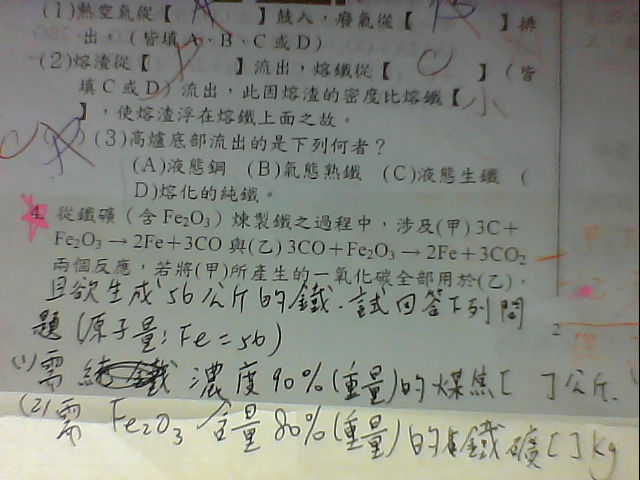 (1)熱空氣從【 】鼓入,廢氣從【 B 】排
出。(皆填A、B、C或D)
(2)熔渣從【 】流出,熔鐵從【 C 】(皆
填C或D)流出,此因熔渣的密度比熔鐵【小
】,使熔渣浮在熔鐵上面之故。
(3)高爐底部流出的是下列何者?
(A)液態鋼 (B)氣態熟鐵 (C)液態生鐵 (
D)熔化的純鐵。
4. 從鐵礦(含Fe₂O₃)煉製鐵之過程中,涉及(甲) 3C+
Fe₂O₃→2Fe+3CO 與(乙) 3CO+Fe₂O₃→2Fe+3CO₂
兩個反應,若將(甲)所產生的一氧化碳全部用於(乙),
且欲生成56公斤的鐵.試回答下列問
題(原子量:Fe=56)
(1)需 濃度90%(重量)的煤焦[ ]公斤.
(2)需 Fe₂O₃含量80%(重量)的鐵礦[ ]kg
2